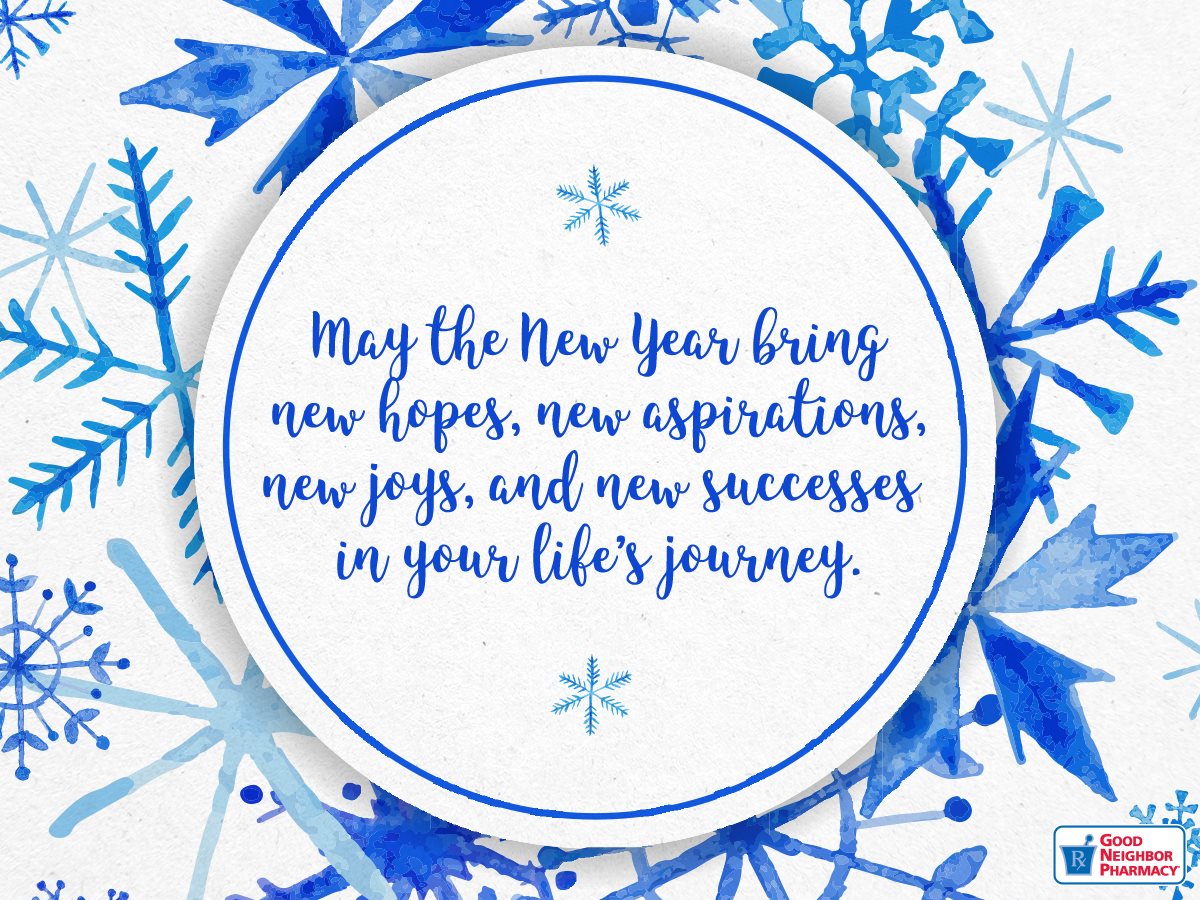 May the New Year bring
new hopes, new aspirations,
new joys, and new successes
in your life's journey.
R
GOOD
NEIGHBOR
PHARMACY